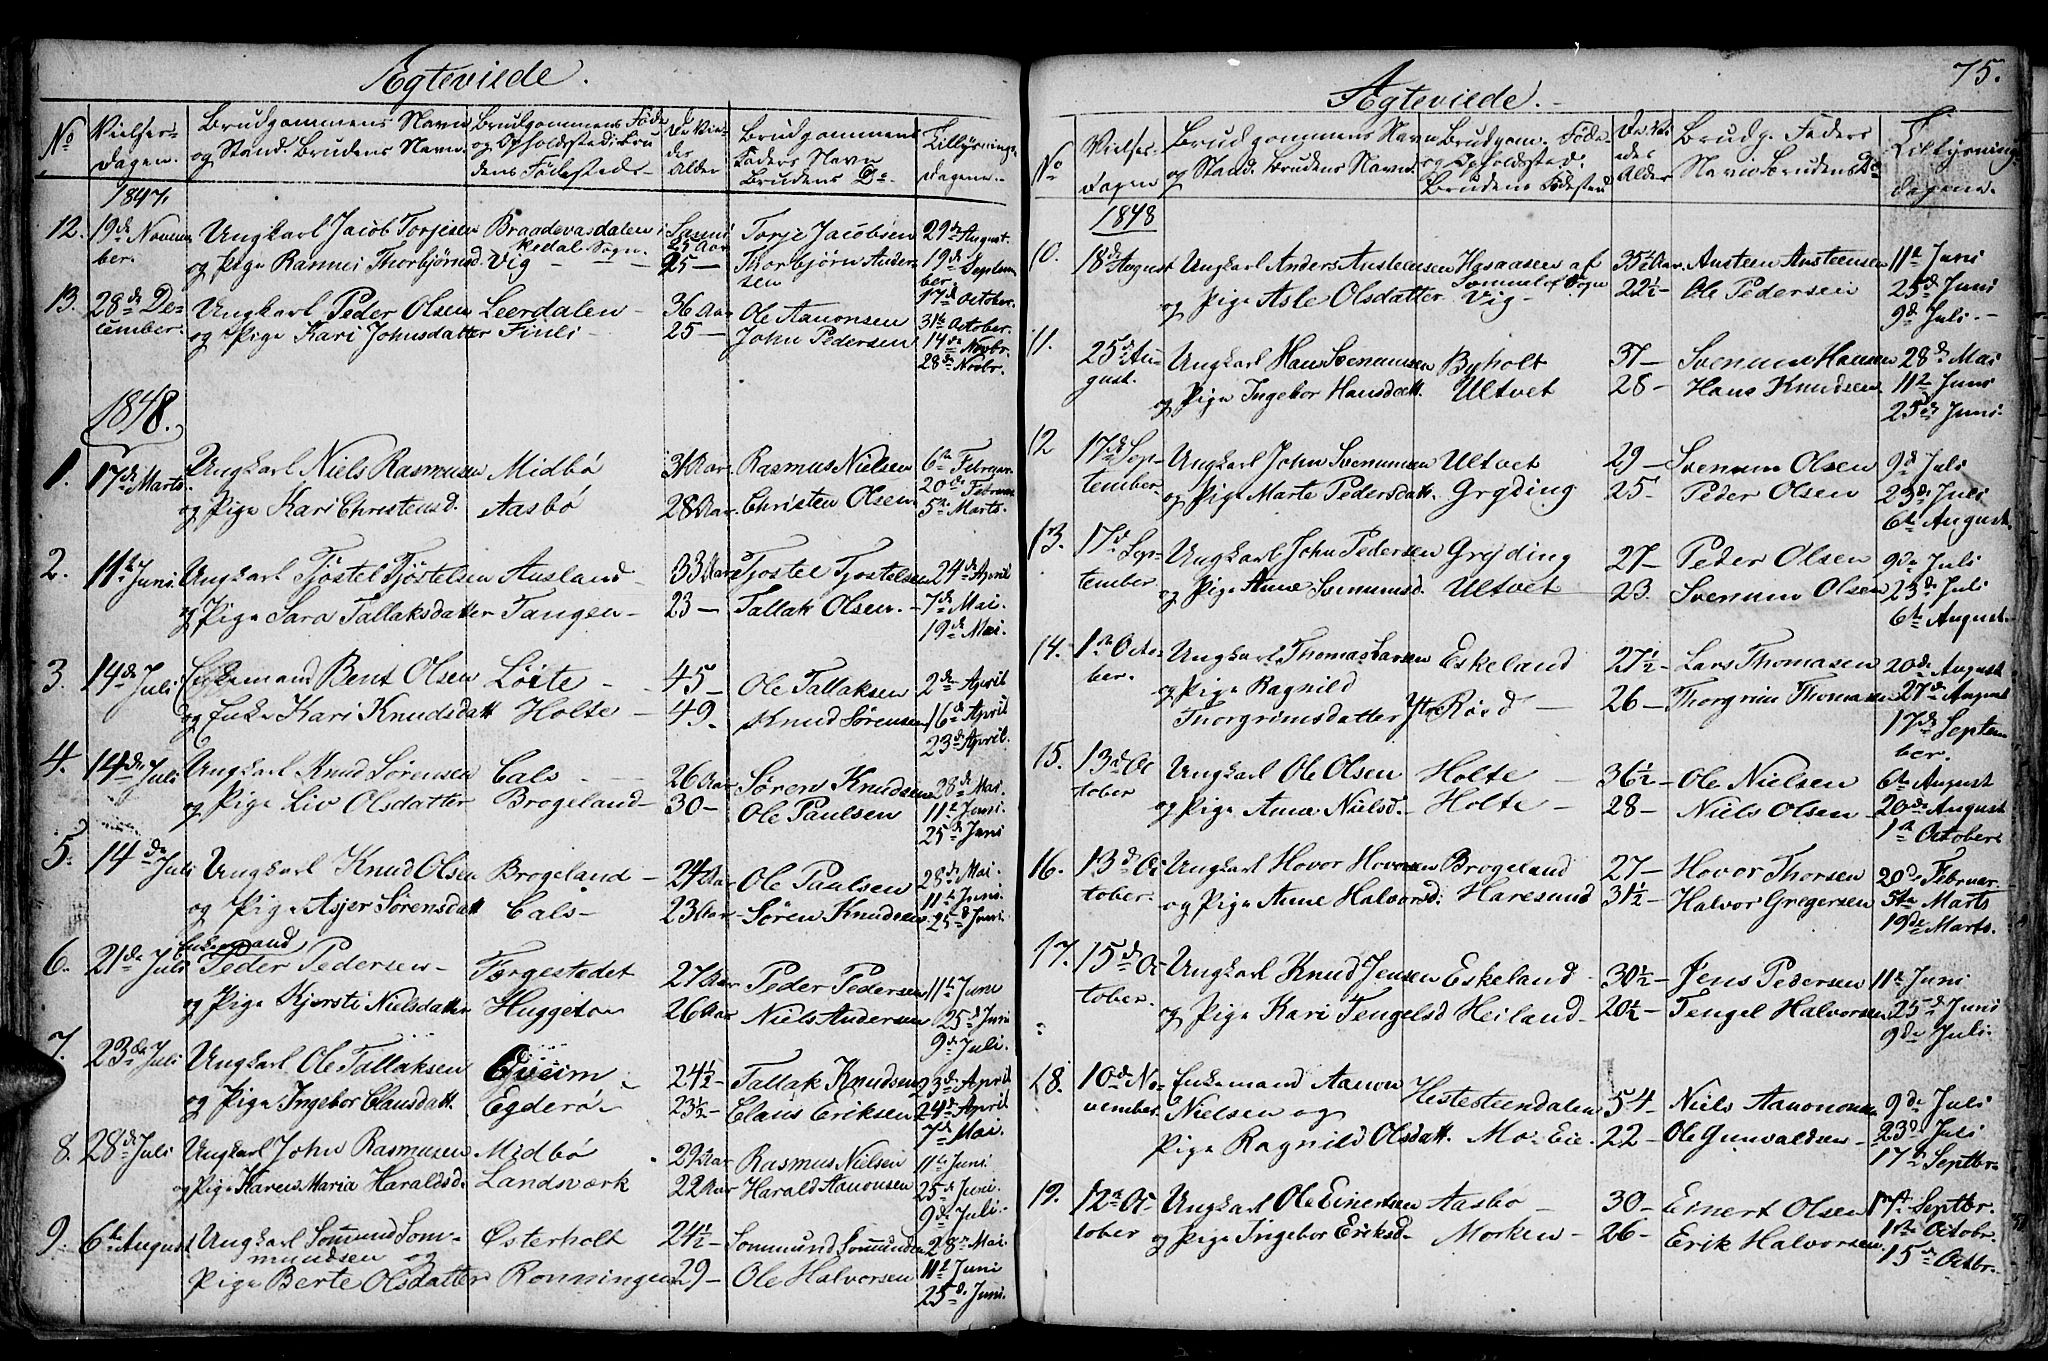 Ægteviede.
No
Vielses-
dagen.
Brudgommens Navn
og Stand. Brudens Navn.
Brudgommens Føde
og Opholdsted. Bru
dens Fødested.
De Vie-
des
Alder
Brudgommens
Faders Navn
Brudens Do.
Tillysnings-
dagene.
1847.
12. 19de Novem Ungkarl Jacob Torjesen Braadevasdalen 25 Aar Torje Jacobsen 29de August.
ber. og Pige Rannei Thorbjörnsd. Vig 25 — Thorbjörn Ander- 19de Septem
sen ber.
17de October.
13. 28de De- Ungkarl Peder Olsen Leerdalen 36 Aar Ole Aanonsen 31te October.
cember. og Pige Kari Johnsdatter Finli 25 — John Pedersen 14de Novbr.
28de Novbr.
1848.
1. 17de Marts. Ungkarl Niels Rasmusen Midbö 31 Aar Rasmus Nielsen 6te Februar
20de Februar
og Pige Kari Christensd. Aasbö 28 Aar. Christen Olsen 5te Marts.
2. 11te Juni Ungkarl Tjöstel Tjöstelsen Ausland 33 Aar Tjostel Tjostelsen 24de April
og Pige Sara Tallaksdatter Tangen 23 — Tallak Olsen. 7de Mai.
19de Mai.
3. 14de Juli Enkemand Bent Olsen Löite 45 — Ole Tallaksen 2den April
og Enke Kari Knudsdatt Holte 49. Knud Sörensen 16de April
23de April.
4. 14de Juli Ungkarl Knud Sörensen Cals 26 Aar Sören Knudsen 28de Mai.
og Pige Liv Olsdatter Brogeland 30 — Ole Paulsen 11te Juni.
25de Juni
5. 14de Juli Ungkarl Knud Olsen Brogeland 24 Aar Ole Paulsen 28de Mai.
11te Juni.
og Pige Asjer Sörensdatt Cals 23 Aar Sören Knudsen 25de Juni.
Enkemand
6. 21de Juli Peder Pedersen Torgestedet 27 Aar Peder Pedersen 11te Juni
og Pige Kjersti Nielsdatter Huggeto 26 Aar Niels Andersen 25de Juni
9de Juli.
7. 23de Juli Ungkarl Ole Tallaksen Qveim 24½ Tallak Knudsen 23de April
og Pige Ingebor Clausdatt. Egderö 23½ Claus Eriksen 24de April
7de Mai.
8. 28de Juli Ungkarl John Rasmusen Midbö 29 Aar Rasmus Nielsen 11te Juni
og Pige Karen Maria Haraldsd. Landsværk 22 Aar Harald Aanonsen 25de Juni.
9de Juli.
9. 6te August Ungkarl Sommund Som- Østerholt 24½ Sommund Sommundsen 28de Mai
mundsen og 11te Juni
Pige Berte Olsdatter Ronningen 29 — Ole Halvorsen 25de Juni.
75.
Ægteviede.
No
Vielses-
dagen
Brudgommens Navn
og Stand. Brudens Navn.
Brudgom. Føde
og Opholdsted.
Brudens Fødested
De Vi-
edes
Alder
Brudg. Faders
Navn Brudens Do
Tillysnings
dagene.
1848
10. 18de August Ungkarl Anders Austeensen Hasaasen af 35½ Aar. Austeen Austeensen 11te Juni
og Pige Asle Olsdatter Vig 22½ Ole Pedersen 25de Juni
9de Juli.
11. 25de Au- Ungkarl Hans Svenumsen Byholt 37 — Svenum Hansen 28de Mai
gust. og Pige Ingebor Hansdatt. Ultvet 28 — Hans Knudsen 11te Juni
25de Juni.
12 17de Sep- Ungkarl John Svenumsen Ultvet 29 — Svenum Olsen 9de Juli
tember. og Pige Marte Pedersdatt. Gryding 25 — Peder Olsen 23de Juli
6te August.
13. 17de Sep- Ungkarl John Pedersen Gryding 27 — Peder Olsen 9de Juli
tember. og Pige Anne Svenumsd. Ultvet 23. Svenum Olsen 23de Juli
6te August.
14. 1ste Octo- Ungkarl Thomas Larsen Eskeland 27½ Lars Thomasen 20de August
ber. og Pige Ragnild 27de August
Thorgrimsdatter Ytre Röed 26 — Thorgrim Thomasen 17de Septem
ber.
15. 13de Oc Ungkarl Ole Olsen Holte 36½ Ole Nielsen 6te August
tober og Pige Anne Nielsd. Holte 28 — Niels Olsen 20de August
1ste October
16. 13de Oc Ungkarl Hovor Hovorsen Brogeland 27 — Hovor Thorsen 20de Februar.
tober. og Pige Anne Halvorsd. Haresund 31½ Halvor Gregersen 5te Marts
19de Marts.
17. 15de Oc Ungkarl Knud Jensen Eskeland 30½ Jens Pedersen 11te Juni
tober. og Pige Kari Tengelsd Heiland 20½ Tengel Halvorsen 25de Juni
9de Juli.
18. 10de No- Enkemand Aanon Hestesteendalen 54 — Niels Aanonsen 9de Juli
vember. Nielsen og 23de Juli
Pige Ragnild Olsdatt. Mo 22 — Ole Gunvaldsen 17de Septbr.
19. 12te Oc- Ungkarl Ole Einertsen Aasbö 30 — Einert Olsen 17de Septbr.
tober og Pige Ingebor Eriksd. Morken 26 — Erik Halvorsen 1ste Octobr.
15de Octbr.